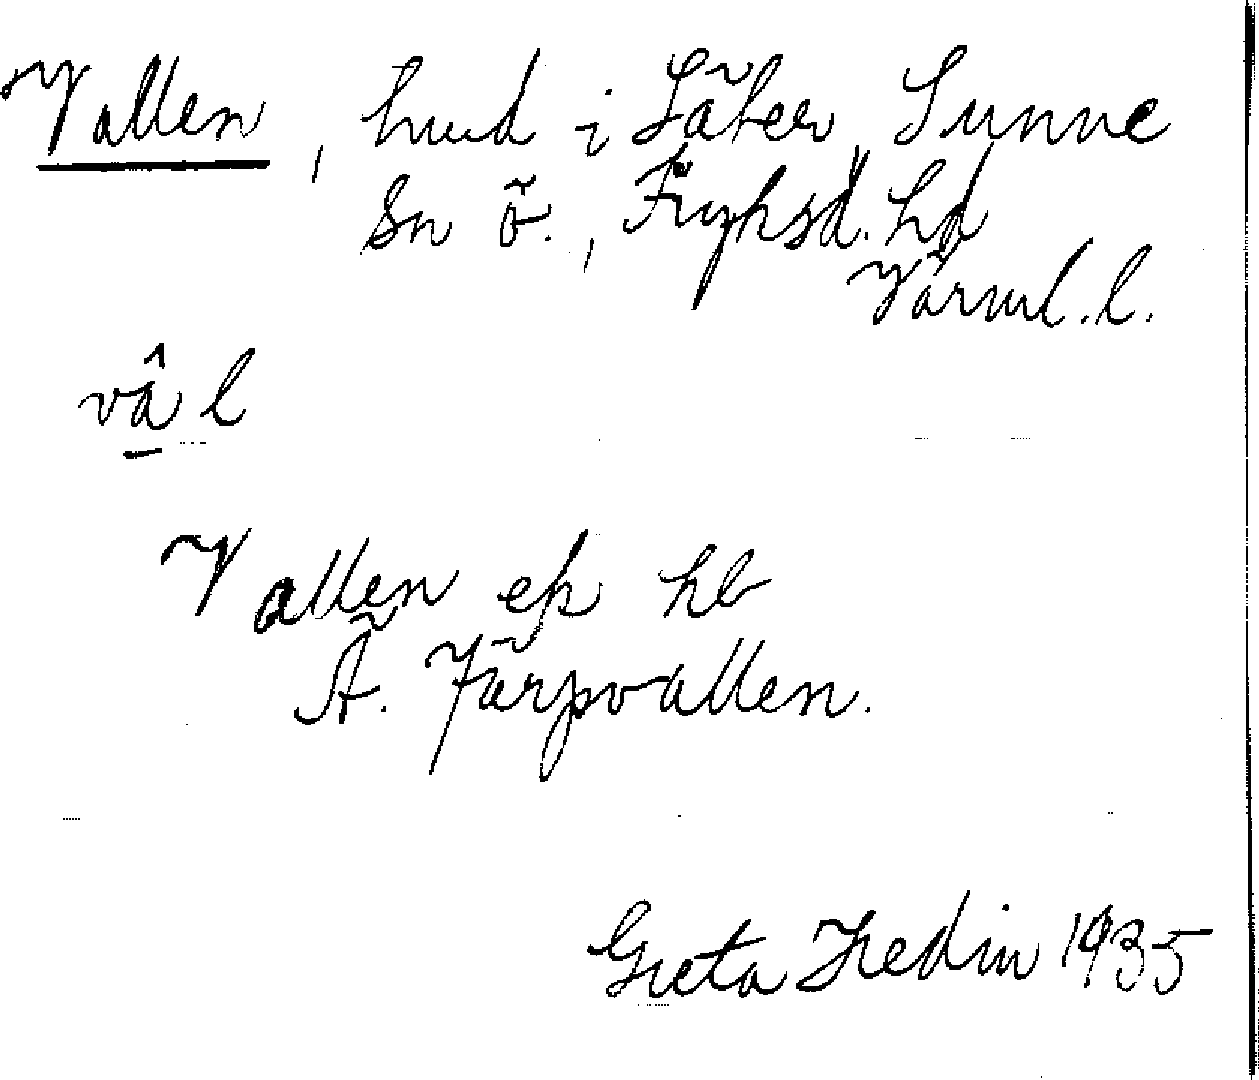 Vallen, hmd i Säter, Sunne
sn ö., Fryksd. hd
Värml. l.
vâl
Vallen ek hb
Ä. Järpvallen.
Greta Hedin 1935